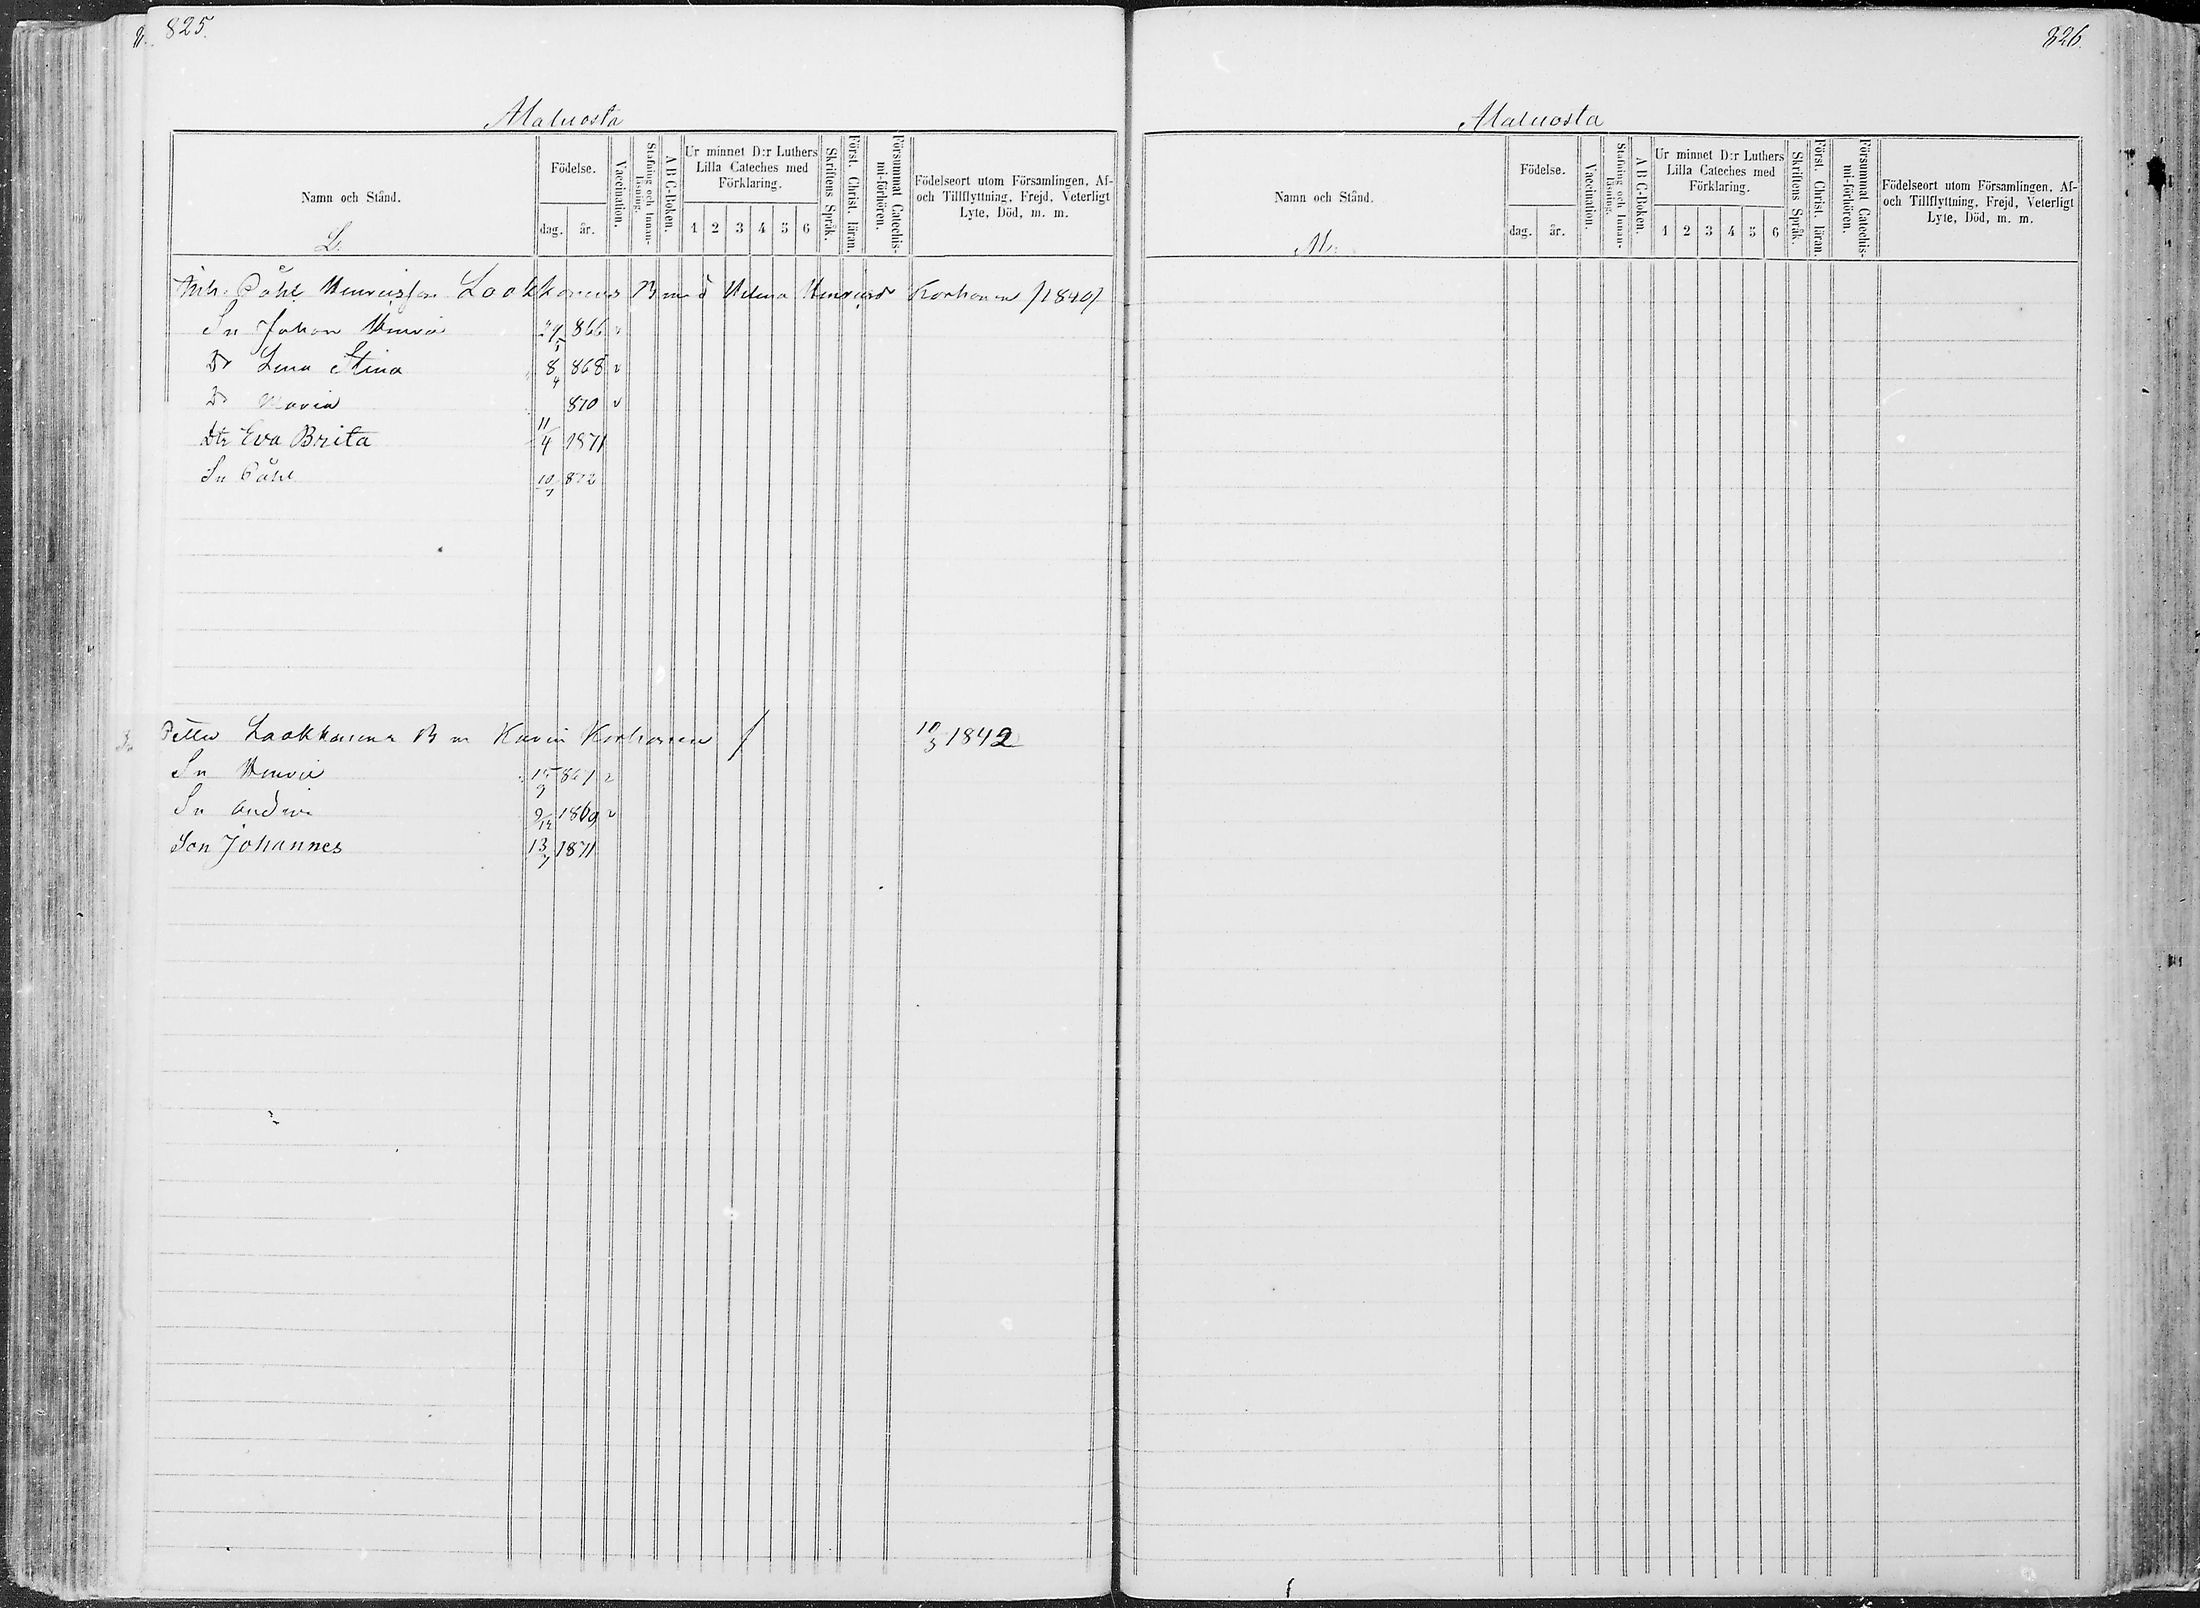 825.
Maluosta
Namn och Stånd.
L.
Födelse.
dag. år.
Vaccination.
Stafning och Innan-läsning.
A B C-Boken.
Ur minnet D:r Luthers
Lilla Cateches med
Förklaring.
1 2 3 4 5 6
Skriftens Språk.
Först. Christ. läran.
Försummat Catechis-mi-förhören.
Födelseort utom Församlingen, Af-
och Tillflyttning, Frejd, Veterligt
Lyte, Död, m. m.
Påhl Henricsson Laakkonens B m d Helena Henricsd Korhonen /1840/
Sn Johan Henric 29/5 866 v
Dr Lena Stina 8/4 868 v
Dr Maria 870 v
Dtr Eva Brita 11/4 1871
Sn Påhl 10/7 872
Petter Laakkonens B m Karin Korhonen / 10/3 1842
Sn Henric 15/9 867 v
Sn Andrie 9/12 1869 v
Son Johannes 13/7 1871
826.
Maluosta
Namn och Stånd.
M.
Födelse.
dag. år.
Vaccination.
Stafning och Innan-läsning.
A B C-Boken.
Ur minnet D:r Luthers
Lilla Cateches med
Förklaring.
1 2 3 4 5 6
Skriftens Språk.
Först. Christ. läran.
Försummat Catechis-mi-förhören.
Födelseort utom Församlingen, Af-
och Tillflyttning, Frejd, Veterligt
Lyte, Död, m. m.